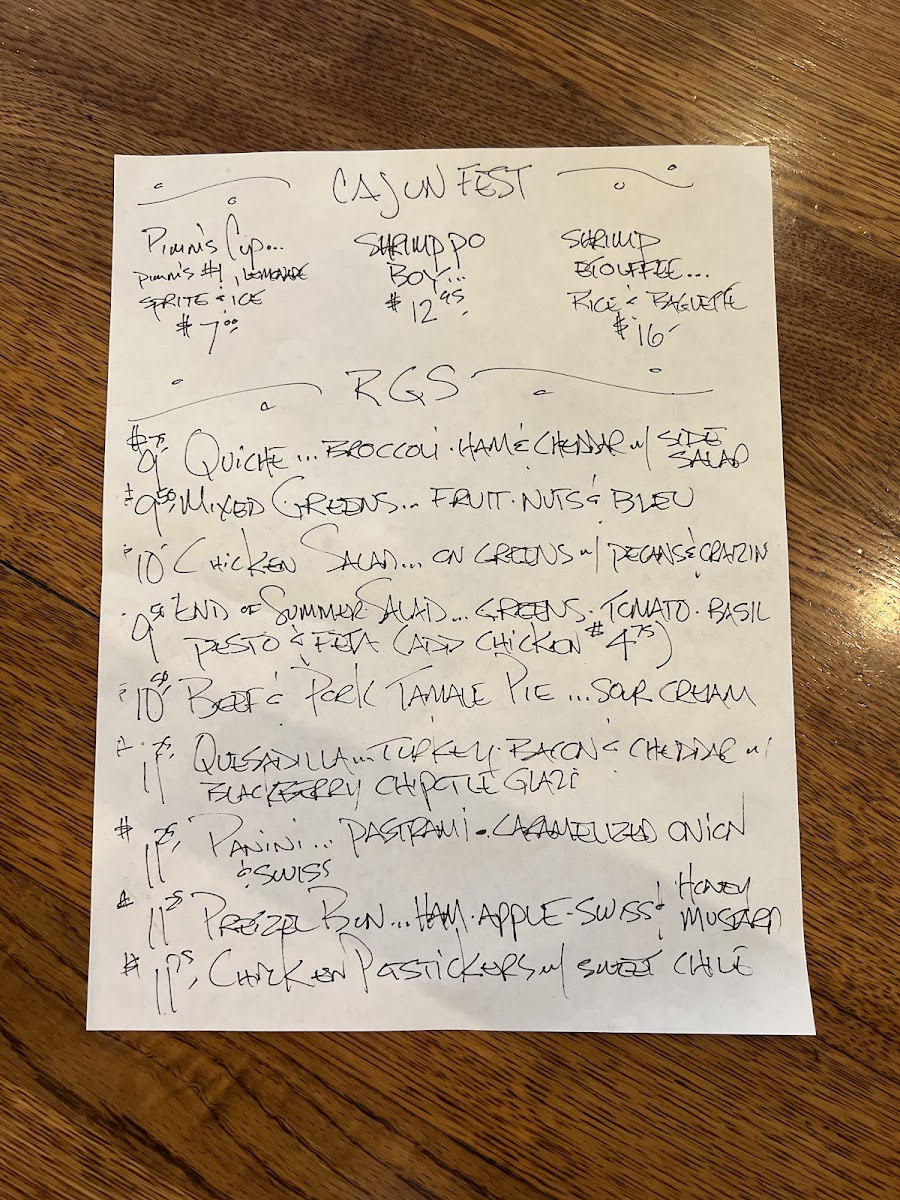 CAJUN FEST
Pimm's Cup...
Pimm's #1, LEMONADE
SPRITE & ICE
$7.00
SHRIMP PO
BOY!..
$12.95
SHRIMP
ETOUFFEE...
RICE & BAGUETTE
$16
RGS
$9.75 QUICHE... BROCCOLI · HAM & CHEDDAR w/ SIDE SALAD
$9.50 MIXED GREENS... FRUIT · NUTS & BLEU
10 CHICKEN SALAD... ON GREENS w/ PECANS & CRAIZIN
9.50 END OF SUMMER SALAD... GREENS · TOMATO · BASIL
PESTO & FETA (ADD CHICKEN $4.75)
10.50 BEEF & PORK TAMALE PIE... SOUR CREAM
11.75 QUESADILLA... TURKEY · BACON & CHEDDAR w/
BLACKBERRY CHIPOTLE GLAZE
$11.75, PANINI... PASTRAMI · CARAMELIZED ONION
& SWISS
$11.25 PRETZEL BUN... HAM · APPLE · SWISS & HONEY MUSTARD
$11.75, CHICKEN POSTICKERS w/ SWEET CHILE